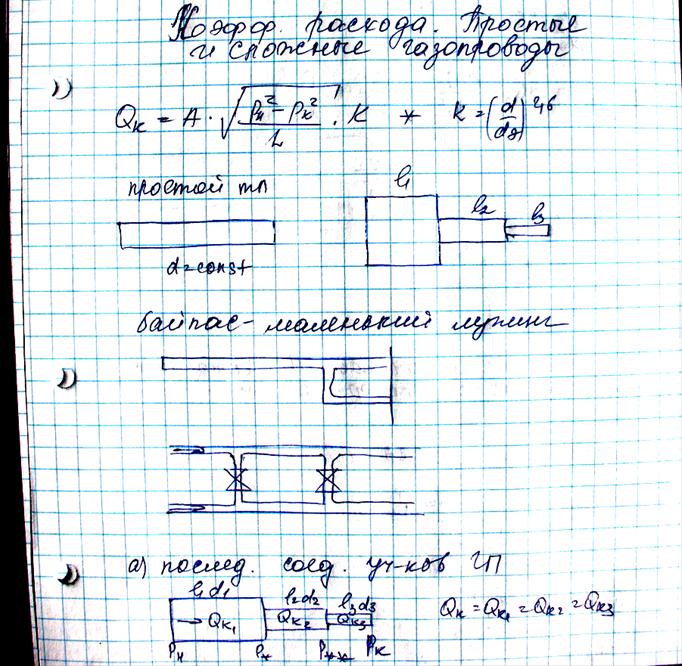 Коэфф. расхода. Простые
и сложные газопроводы
Qк = A · √((Pн² - Pк²) / L) · K * K = (d/dэ)^2,6
простой тп
l1
l2
l3
d=const
байпас - маленький лупинг
а) послед. соед. уч-ков ГП
l1d1 l2d2 l3d3
→ Qк1 Qк2 Qк3
Qк = Qк1 = Qк2 = Qк3
Pн P* P** Pк